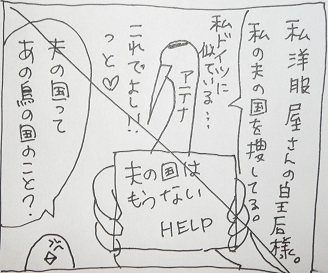 私洋服屋さんの皇后様。
私の夫の国を捜してる。
私ドイツに
似ている…
アテナ
これでよし!!
っと♡
夫の国は
もうない
HELP
夫の国って
あの鳥の国のこと?